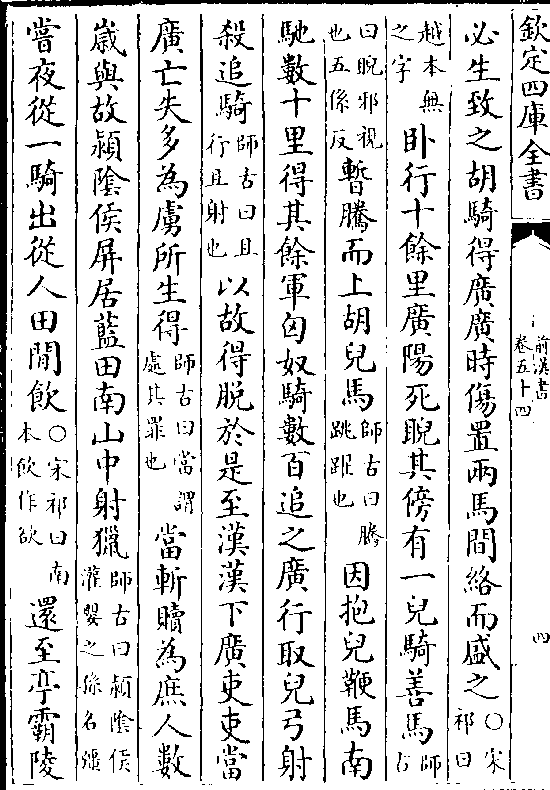 欽定四庫全書
前漢書
卷五十四
四
必生致之胡騎得廣廣時傷置兩馬間絡而盛之○宋祁曰
越本無之字卧行十餘里廣陽死睨其傍有一兒騎善馬師古
曰睨邪視也五係反暫騰而上胡兒馬師古曰騰跳躍也因抱兒鞭馬南
馳數十里得其餘軍匈奴騎數百追之廣行取兒弓射
殺追騎師古曰且行且射也以故得脱於是至漢漢下廣吏吏當
廣亡失多為虜所生得師古曰當謂處其罪也當斬贖為庶人數
嵗與故潁隂侯屏居藍田南山中射獵師古曰潁隂侯灌嬰之孫名彊
嘗夜從一騎出從人田間飲○宋祁曰南本飲作欲還至亭霸陵